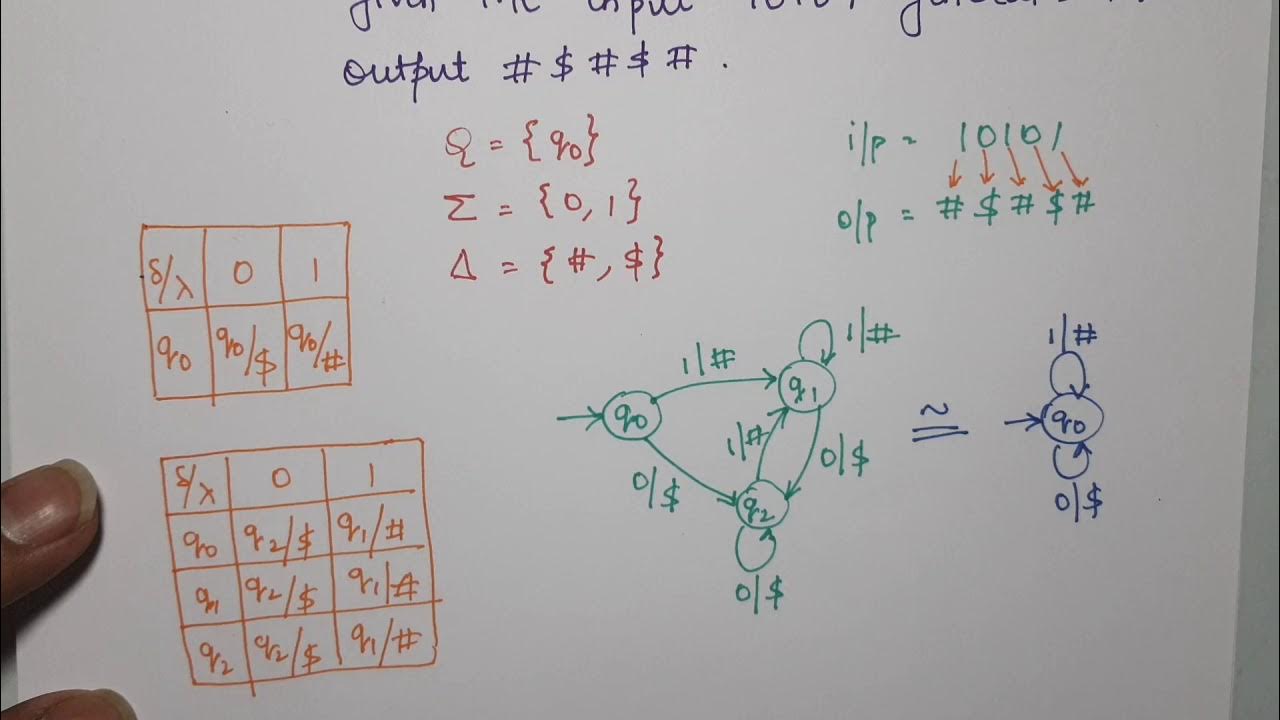 given the input 10101
output # $ # $ # .
Q = {q0}
Σ = {0, 1}
Δ = {#, $}
i/p = 10101
o/p = # $ # $ #
δ/λ 0 1
q0 q0/$ q0/#
δ/λ 0 1
q0 q2/$ q1/#
q1 q2/$ q1/#
q2 q2/$ q1/#
1/#
1/#
q0
q1
1/#
0/$
0/$
q2
0/$
≅
1/#
q0
0/$